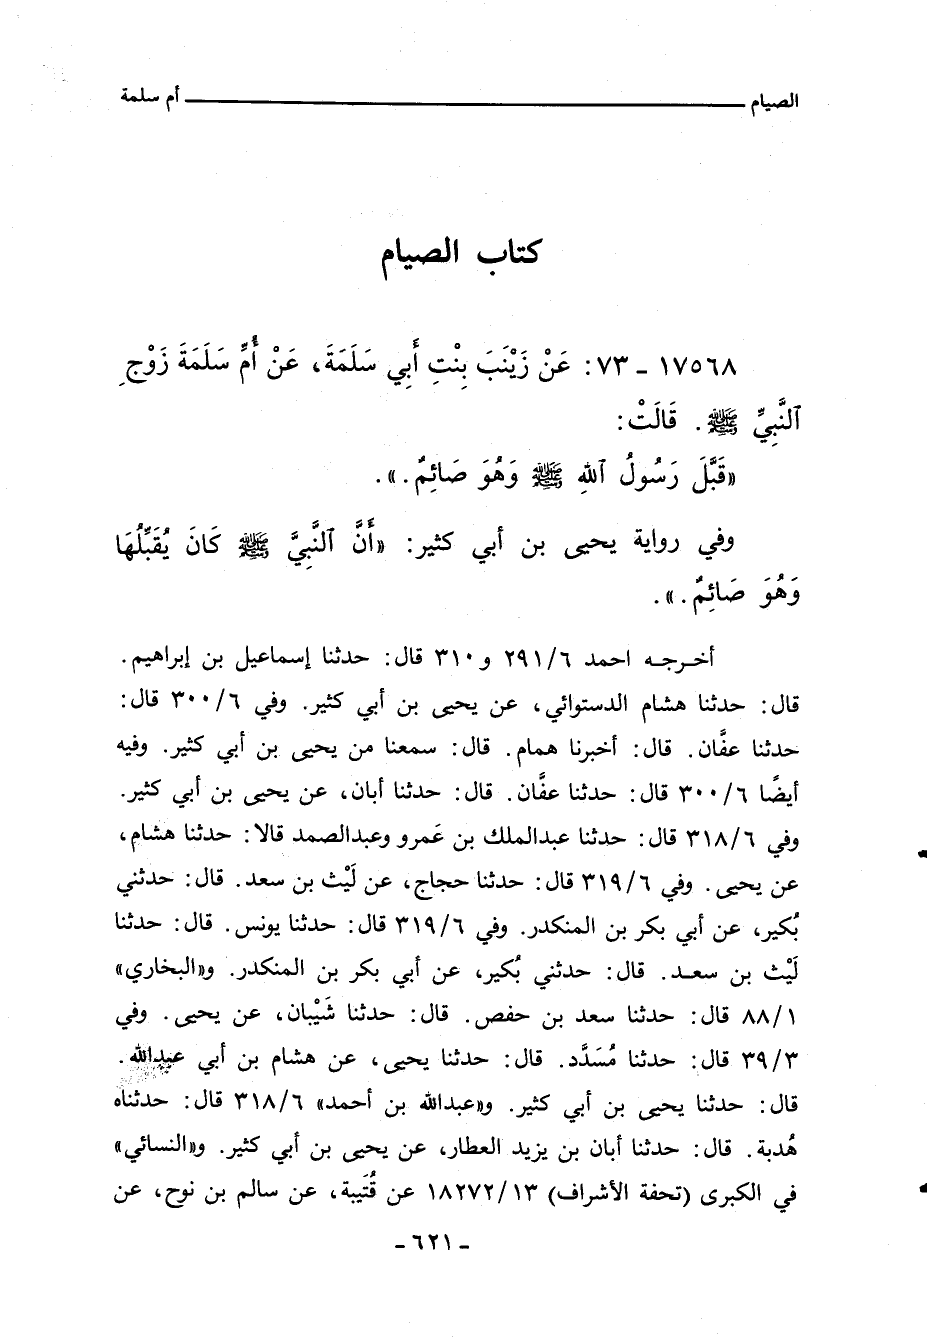 الصيام أم سلمة
كتاب الصيام
١٧٥٦٨ ـ ٧٣: عَنْ زَيْنَبَ بِنْتِ أَبِي سَلَمَةَ، عَنْ أُمِّ سَلَمَةَ زَوْجِ
ٱلنَّبِيِّ ﷺ. قَالَتْ:
«قَبَّلَ رَسُولُ ٱللهِ ﷺ وَهُوَ صَائِمٌ.».
وفي رواية يحيى بن أبي كثير: «أَنَّ ٱلنَّبِيَّ ﷺ كَانَ يُقَبِّلُهَا
وَهُوَ صَائِمٌ.».
أخـرجـه احمد ٢٩١/٦ و٣١٠ قال: حدثنا إسماعيل بن إبراهيم.
قال: حدثنا هشام الدستوائي، عن يحيى بن أبي كثير. وفي ٣٠٠/٦ قال:
حدثنا عفَّان. قال: أخبرنا همام. قال: سمعنا من يحيى بن أبي كثير. وفيه
أيضًا ٣٠٠/٦ قال: حدثنا عفَّان. قال: حدثنا أبان، عن يحيى بن أبي كثير.
وفي ٣١٨/٦ قال: حدثنا عبدالملك بن عَمرو وعبدالصمد قالا: حدثنا هشام،
عن يحيى. وفي ٣١٩/٦ قال: حدثنا حجاج، عن لَيْث بن سعد. قال: حدثني
بُكير، عن أبي بكر بن المنكدر. وفي ٣١٩/٦ قال: حدثنا يونس. قال: حدثنا
لَيْث بن سعـد. قال: حدثني بُكير، عن أبي بكر بن المنكدر. و«البخاري»
٨٨/١ قال: حدثنا سعد بن حفص. قال: حدثنا شَيْبان، عن يحيى. وفي
٣٩/٣ قال: حدثنا مُسَدَّد. قال: حدثنا يحيى، عن هشام بن أبي عبدالله.
قال: حدثنا يحيى بن أبي كثير. و«عبدالله بن أحمد» ٣١٨/٦ قال: حدثناه
هُدبة. قال: حدثنا أبان بن يزيد العطار، عن يحيى بن أبي كثير. و«النسائي»
في الكبرى (تحفة الأشراف) ١٨٢٧٢/١٣ عن قُتَيبة، عن سالم بن نوح، عن
ـ ٦٢١ ـ